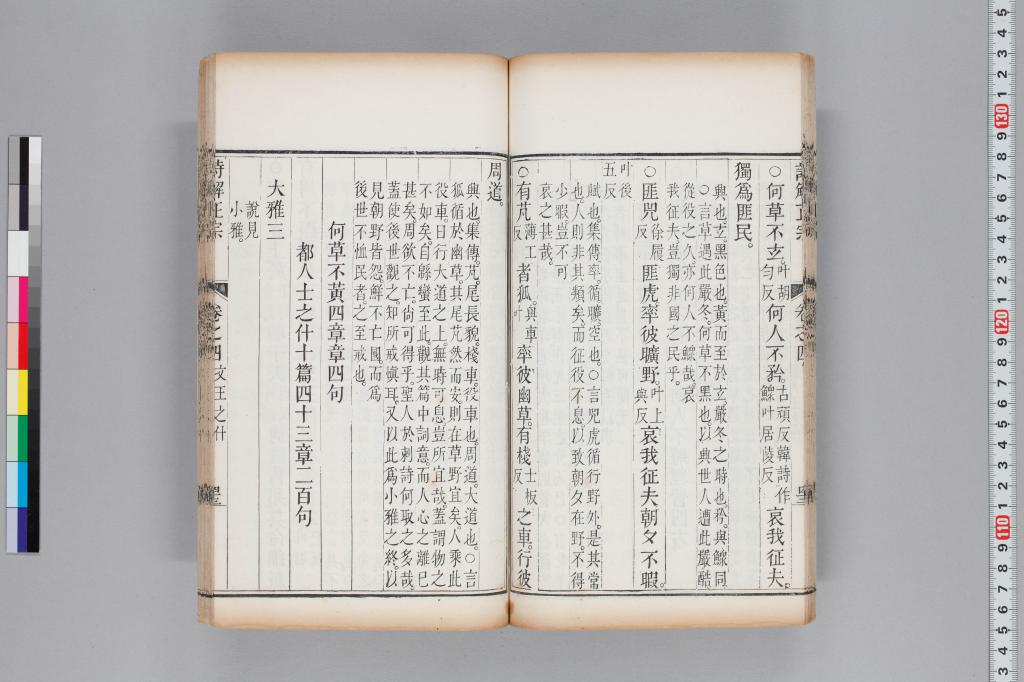 ○何草不玄叶胡勻反何人不矜古頑反韓詩作鰥叶居陵反哀我征夫
獨爲匪民
興也玄黑色也黃而至於玄嚴冬之時也矜與鰥同
○言草遇此嚴冬何草不黑也以興世人遭此嚴酷
從役之久亦何人不鰥哉哀
我征夫豈獨非國之民乎
○匪兕徐履反匪虎率彼曠野叶上與反哀我征夫朝夕不暇
叶後五反
賦也集傳率循曠空也○言兕虎循行野外是其常
也人則非其類矣而征役不息以致朝夕在野不得
少暇豈不可
哀之甚哉
○有芃薄工反者狐叶與車率彼幽草有棧士板反之車行彼
周道
興也集傳芃尾長貌棧車役車也周道大道也○言
狐循於幽草其尾芃然而安則在草野宜矣人乘此
役車日行大道之上無時可息豈所宜哉蓋謂物之
不如矣自緜蠻至此觀其篇中詞意而人心之離已
甚矣周欲不亡尙可得乎聖人於刺詩何取之多哉
蓋使後世觀之知所戒愼耳又以此爲小雅之終以
見朝野皆怨鮮不亡國而爲
後世不恤民者之至戒也
何草不黃四章章四句
都人士之什十篇四十三章二百句
大雅三
說見小雅
詩解正宗
卷之四文王之什